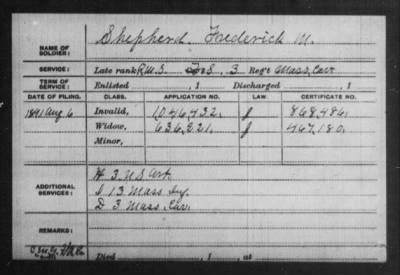 NAME OF SOLDIER: Shepherd, Frederick M.
SERVICE: Late rank R.M.S. F&S, 3 Reg't Mass. Cav.
TERM OF SERVICE: Enlisted , 1 Discharged , 1
DATE OF FILING. CLASS. APPLICATION NO. LAW. CERTIFICATE NO.
1891 Aug. 6 Invalid, 1,046,432. J 868,486.
Widow, 636,821. J 467,180.
Minor,
ADDITIONAL SERVICES: H 3 U.S. Art.
I 13 Mass Inf.
D 3 Mass. Cav.
REMARKS:
Died , 1 , at